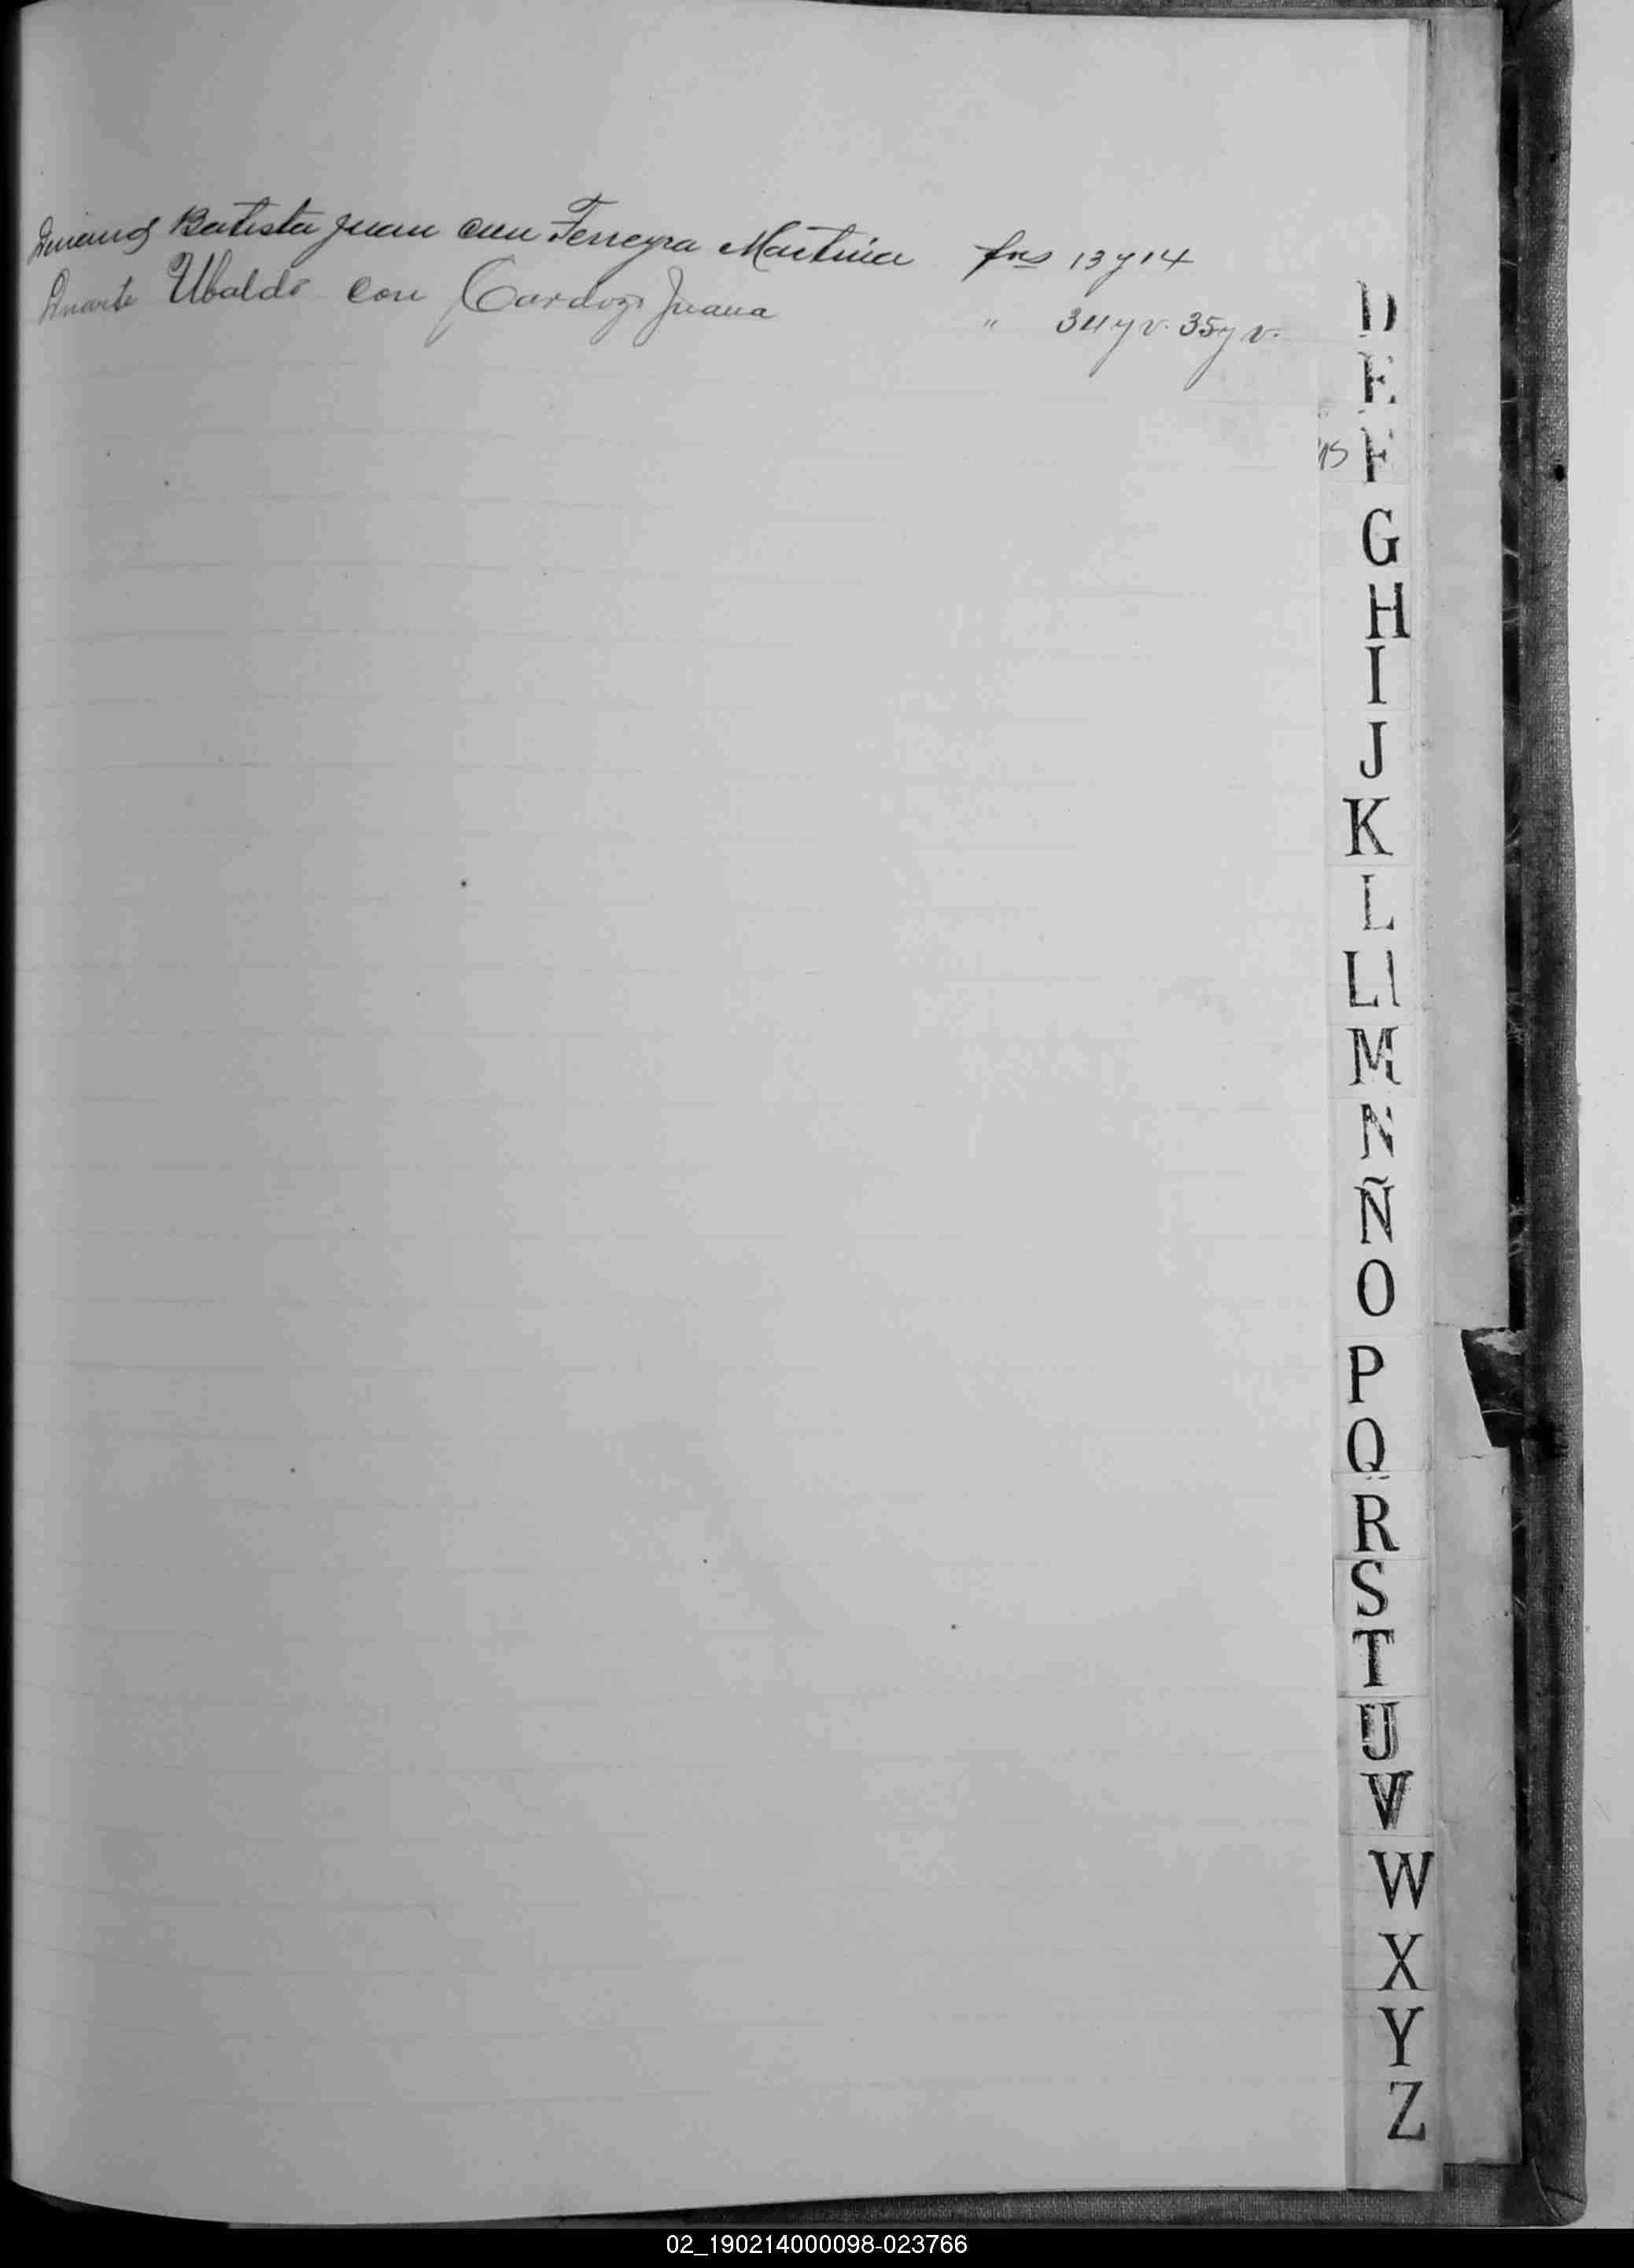 Batista Juan con Ferreyra Martina fns 13 y 14
Duarte Ubaldo con Cardozo Juana " 34 y v. 35 y v.
D
E
F
G
H
I
J
K
L
Ll
M
N
Ñ
O
P
Q
R
S
T
U
V
W
X
Y
Z
02_190214000098-023766